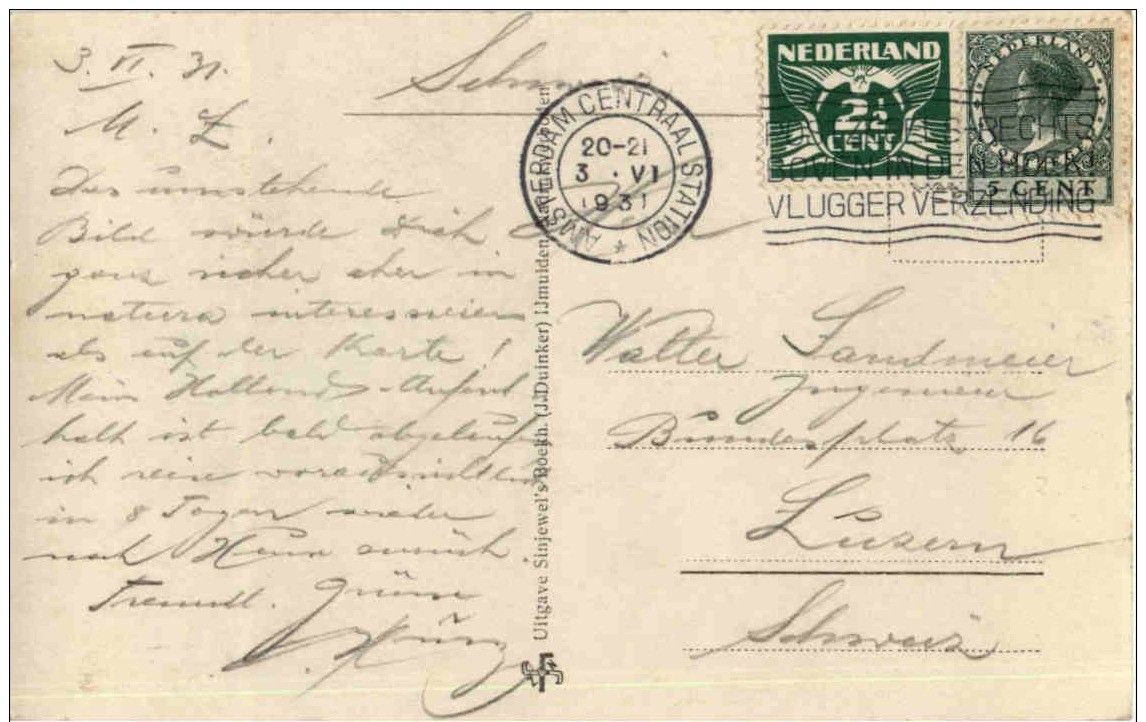 3. VI. 31.
M. L.
Das umstehende
Bild würde Dich
ganz sicher eher in
natura interessieren
als auf der Karte!
Mein Holland-Aufent
halt ist bald abgelaufen
ich reise voraussichtlich
in 8 Tagen wieder
nach Hause zurück.
Freundl. Grüsse
Schweiz
AMSTERDAM CENTRAAL STATION
20-21
3 · VI
1931
NEDERLAND
2½
CENT
NEDERLAND
5 CENT
RECHTS
BOVEN IN DEN HOEK!
VLUGGER VERZENDING
Uitgave Sinjewel's Boekh. (J. Duinker) IJmuiden
Walter Sandmeier
Ingenieur
Bundesplatz 16
Luzern
Schweiz